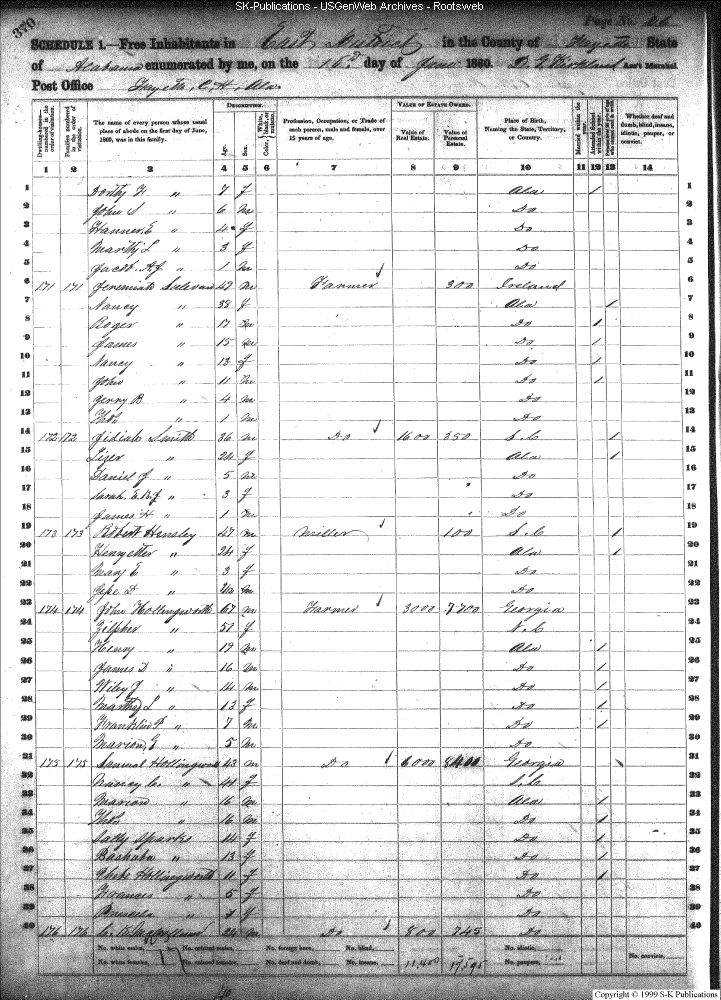 SK-Publications - USGenWeb Archives - Rootsweb
370
Page No. 26
SCHEDULE 1.—Free Inhabitants in East District in the County of Fayette State
of Alabama enumerated by me, on the 16th day of June 1860. Kirkland Ass't Marshal.
Post Office Fayette, C. H., Ala
Dwelling-houses— numbered in the order of visitation.
Families numbered in the order of visitation.
The name of every person whose usual place of abode on the first day of June, 1860, was in this family.
DESCRIPTION.
Age.
Sex.
Color, White, black, or mulatto.
Profession, Occupation, or Trade of each person, male and female, over 15 years of age.
VALUE OF ESTATE OWNED.
Value of Real Estate.
Value of Personal Estate.
Place of Birth, Naming the State, Territory, or Country.
Married within the year.
Attended School within the year.
Whether deaf and dumb, blind, insane, idiotic, pauper, or convict.
1 2 3 4 5 6 7 8 9 10 11 12 13 14
1 " 7 f Ala / 1
2 John S " 6 m Do 2
3 Hanner E " 4 f Do 3
4 Marthy L " 3 f Do 4
5 Jacob " 1 m Do 5
6 171 171 Jeremiah Sulevan 42 m Farmer 300 Ireland 6
7 Nancy " 38 f Ala / 7
8 Roger " 17 m Do / 8
9 James " 15 m Do / 9
10 Nancy " 13 f Do / 10
11 John " 11 m Do / 11
12 Jerry B " 4 m Do 12
13 Thos " 1 m Do 13
14 172 172 Smith 36 m Do 1600 350 S. C / 14
15 Lizer " 24 f Ala / 15
16 Daniel J " 5 m Do 16
17 Sarah " 3 f Do 17
18 James H " 1 m Do 18
19 173 173 Robert Hensley 47 m Miller 100 S. C / 19
20 Henyetter " 24 f Ala / 20
21 Mary E " 3 f Do 21
22 D " m Do 22
23 174 174 John Hollingworth 67 m Farmer 3000 7700 Georgia 23
24 Zilpher " 51 f N. C 24
25 Henry " 19 m Ala / 25
26 James D " 16 m Do / 26
27 Wiley J " 14 m Do / 27
28 Marthy L " 13 f Do / 28
29 Franklin P " 7 m Do / 29
30 Marion G " 5 m Do 30
31 175 175 Samuel Hollingworth 43 m Do 6000 8400 Georgia 31
32 Nancy C. " 41 f S. C 32
33 Marion " 16 m Ala / 33
34 Thos " 16 m Do / 34
35 Sally Sparks 14 f Do / 35
36 Bashaba " 13 f Do / 36
37 Hollingworth 11 f Do / 37
38 Frances " 5 f Do 38
39 " f Do 39
40 176 176 24 m Do 800 745 Do 40
No. white males, No. colored males, No. foreign born, No. blind, No. idiotic, No. convicts,
No. white females, 17 No. colored females, No. deaf and dumb, No. insane, 11,400 17,595 No. paupers,
Copyright © 1999 S-K Publications